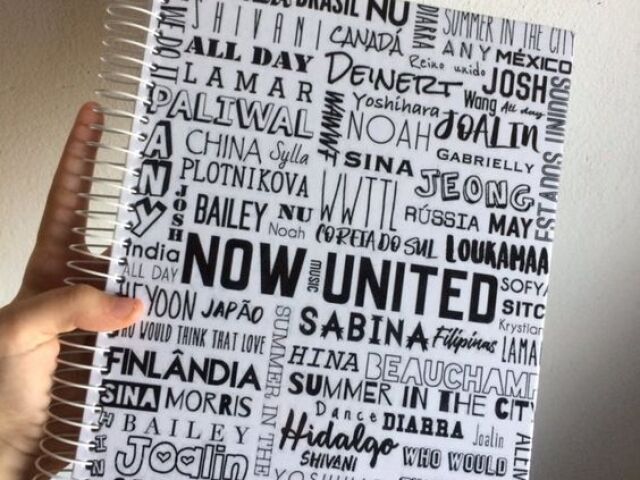 BRASIL NU
SHIVANI
CANADÁ
DIARRA
SUMMER IN THE CITY
ANY
MÉXICO
ALL DAY
Reino unido
LAMAR
DEINERT
JOSH
Yoshihara
Wang All day
PALIWAL
WWWF
NOAH
JOALIN
ANY
CHINA Sylla
SINA
GABRIELLY
PLOTNIKOVA
WWTTL
JEONG
ESTADOS
JOSH
BAILEY NU
Noah
RÚSSIA MAY
COREIA DO SUL
LOUKAMAA
India
ALL DAY
NOW UNITED
MUSIC
SOFYA
HEYOON JAPÃO
SITC
Krystian
WHO WOULD THINK THAT LOVE
SABINA Filipinas
LAMA
SUMMER IN THE
FINLÂNDIA
HINA BEAUCHAMP
SUMMER IN THE CITY
SINA MORRIS
Dance DIARRA Joalin
BAILEY
Hidalgo
SHIVANI
WHO WOULD
Joalin